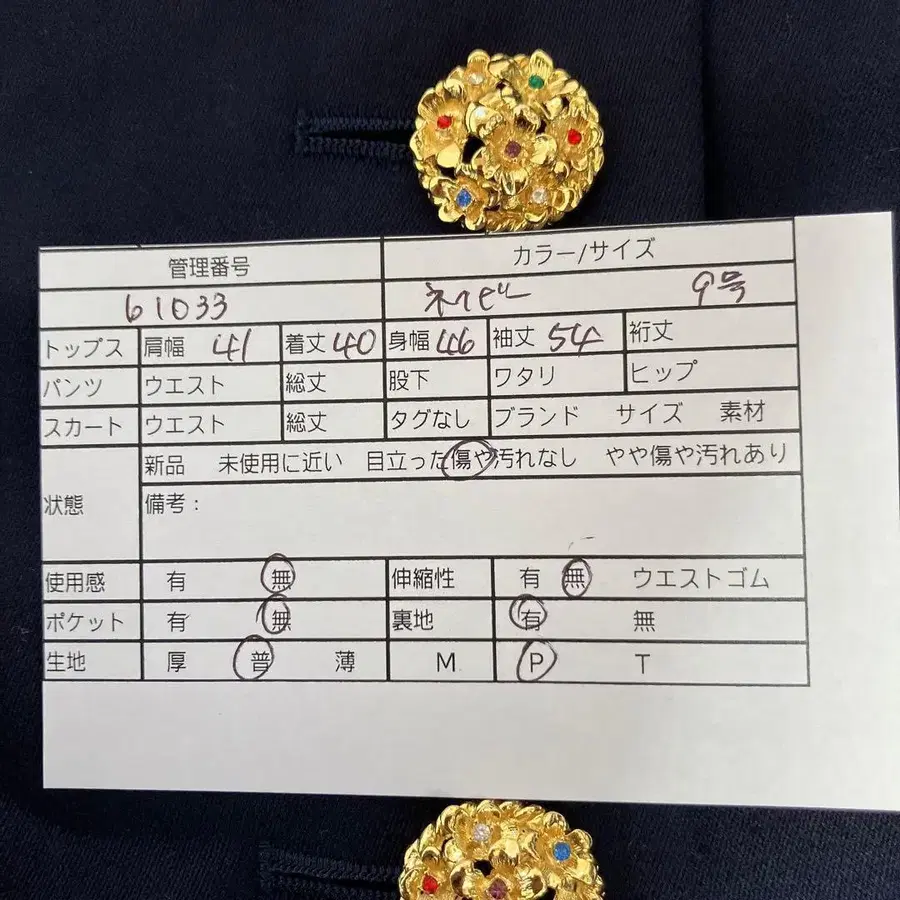 管理番号 カラー/サイズ
61033 ネイビー 9号
トップス 肩幅 41 着丈 40 身幅 46 袖丈 54 裄丈
パンツ ウエスト 総丈 股下 ワタリ ヒップ
スカート ウエスト 総丈 タグなし ブランド サイズ 素材
新品 未使用に近い 目立った傷や汚れなし やや傷や汚れあり
状態 備考：
使用感 有 無 伸縮性 有 無 ウエストゴム
ポケット 有 無 裏地 有 無
生地 厚 普 薄 M P T